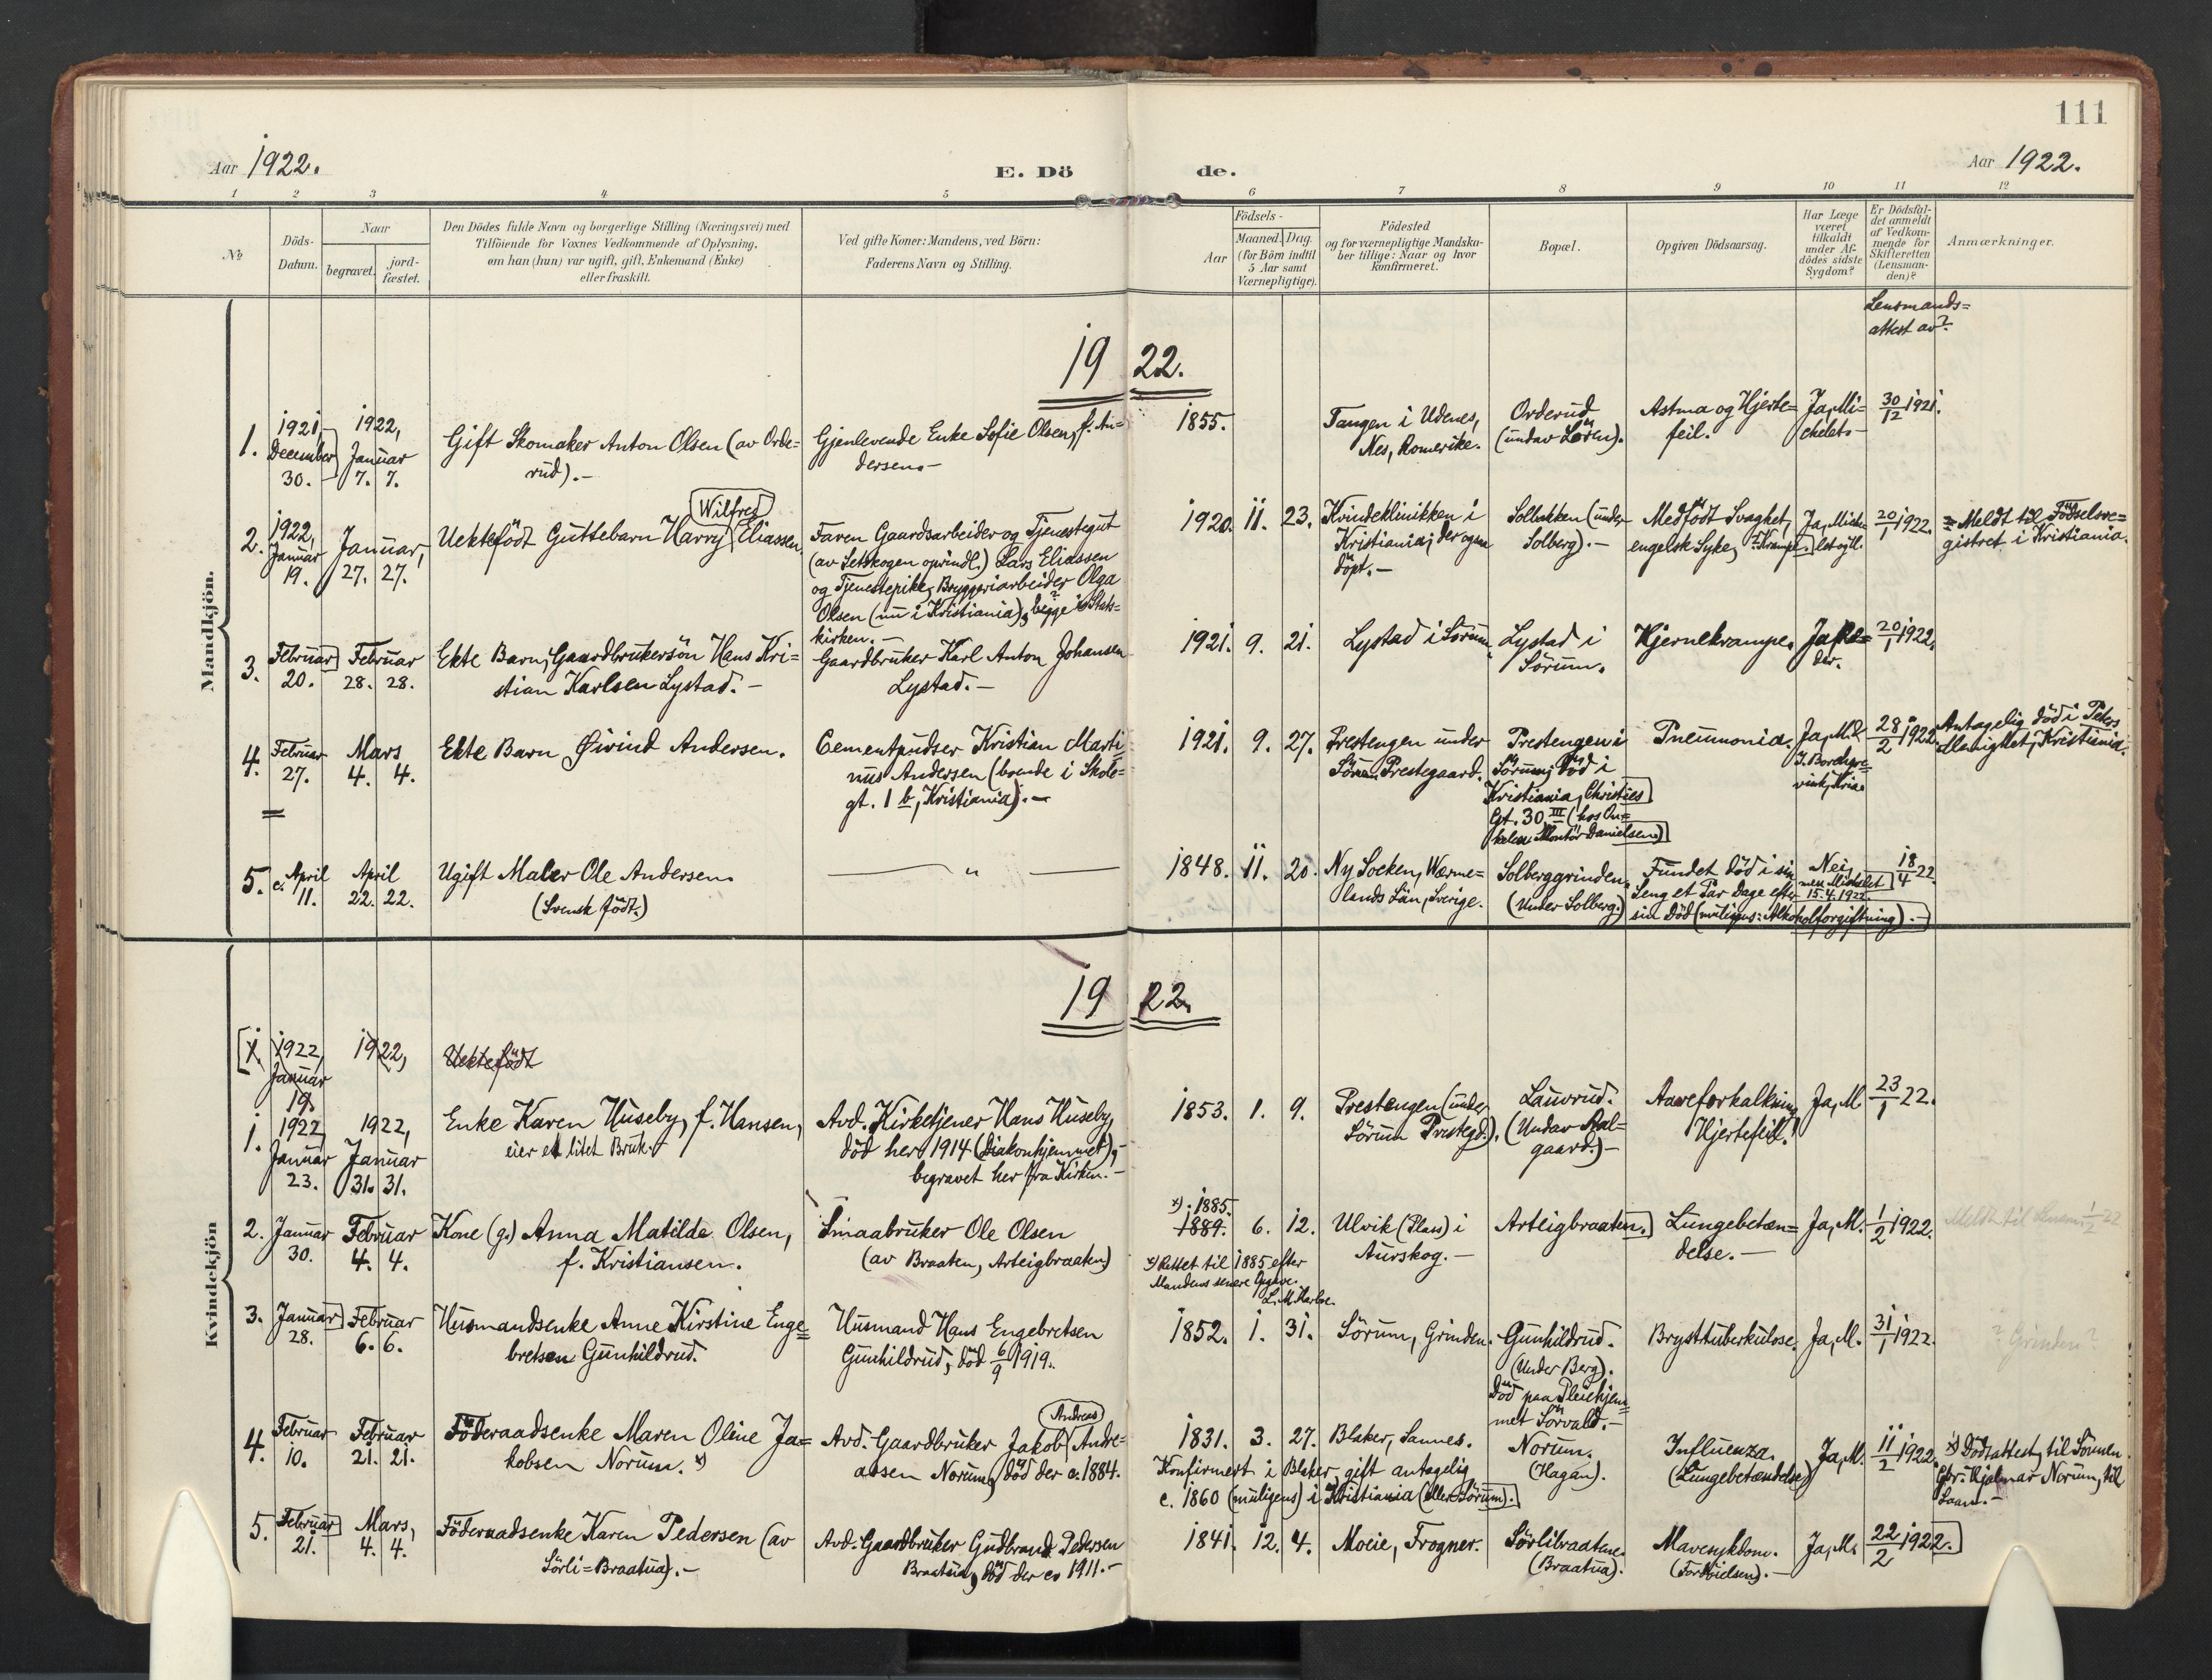 111
Aar 1922.
E. Dö de.
Aar 1922.
1 2 3 4 5 6 7 8 9 10 11 12
No
Döds-
Datum.
Naar
begravet.
jord-
fæstet.
Den Dödes fulde Navn og borgerlige Stilling (Næringsvei) med
Tilföiende for Voxnes Vedkommende af Oplysning,
om han (hun) var ugift, gift, Enkemand (Enke)
eller fraskilt.
Ved gifte Koner: Mandens, ved Börn:
Faderens Navn og Stilling.
Födsels-
Aar
Maaned. Dag.
(for Börn indtil
5 Aar samt
Værnepligtige).
Födested
og for værnepligtige Mandska-
ber tillige: Naar og hvor
konfirmeret.
Bopæl.
Opgiven Dödsaarsag.
Har Læge
været
tilkaldt
under Af-
dödes sidste
Sygdom?
Er Dödsfal-
det anmeldt
af Vedkom-
mende for
Skifteretten
(Lensman-
den)?
Anmærkninger.
Lensmands=
attest av?
19 22.
Mandkjön.
1.
1921,
December
30.
1922,
Januar
7. 7.
Gift Skomaker Anton Olsen (av Orde=
rud).-
Gjenlevende Enke Sofie Olsen, f. An=
dersen.-
1855.
Tangen i Udenes,
Nes, Romerike.
Orderud
(undav Lören).
Astma og Hjerte=
feil.
Ja, Mi=
chelet.-
30/12 1921.
2.
1922,
Januar
19.
Januar,
27. 27.
Wilfred
Uektefödt Guttebarn Harry Eliassen.
Faren Gaardsarbeider og Tjenestegut
(av Setskogen oprindl.) Lars Eliassen
og Tjenestepike, Bryggeriarbeider Olga
Olsen (nu i Kristiania), begge i Stats=
kirken.-
1920. 11. 23.
Kvindeklinikken i
Kristiania; der ogsaa
döpt.-
Solbakken (under
Solberg).-
Medfödt Svaghet,
engelsk Syke, Krampe.
Ja, Miche=
let
20/1 1922.
= Meldt til Födselsre=
gistret i Kristiania.
3.
Februar
20.
Februar
28. 28.
Ekte Barn, Gaardbrukersön Hans Kri=
stian Karlsen Lystad.-
Gaardbruker Karl Anton Johansen
Lystad.-
1921. 9. 21.
Lystad i Sörum.
Lystad i
Sörum.
Hjernekrampe.
20/1 1922.
4.
Februar
27.
Mars
4. 4.
Ekte Barn Øivind Andersen.
Cementpudser Kristian Marti
nus Andersen (boende i Skole=
gt. 1 b, Kristiania).-
1921. 9. 27.
Prestengen under
Sörum Prestegaard.
Prestengen i
Sörum; död i
Kristiania, Christies
Gt. 30 III (hos On=
kelen Montör Danielsen.)
Pneumonia.
28/2 1922.
Antagelig död i Petrus
Menighet, Kristiania.
5.
c. April
11.
April
22. 22.
Ugift Maler Ole Andersen.
(Svensk födt.)
— " —
1848. 11. 20.
Ny Socken, Værme=
lands Län, Sverige.
Solberggrinden.
(Under Solberg.)
Fundet död i sin
Seng et Par dage efter
sin Död (muligens: Alkoholforgiftning).-
Nei,
men Michelet
15.4.1922.
18/4 22.
19 22.
Kvindekjön
1.
1922,
Januar
19.
1922,
Uektefödt
1.
1922
Januar
23.
1922,
Januar
31. 31.
Enke Karen Huseby, f. Hansen,
eier et litet Bruk.-
Avd. Kirketjener Hans Huseby,
död her 1914 (Diakonhjemmet),-
begravet her fra Kirken.-
1853. 1. 9.
Prestengen (under
Sörum Prestegd.).
Lauvrud.
(Undav Aal=
gaard.)-
Aareforkalkning
Hjertefeil.
Ja, M
23/1 22.
2.
Januar
30.
Februar
4. 4.
Kone (g.) Anna Matilde Olsen,
f. Kristiansen.
Smaabruker Ole Olsen
(av Braaten, Arteigbraaten)
x) 1885.
1889. 6. 12.
x) Rettet til 1885 efter
Mandens senere Opgave.
Ulvik (Plass) i
Aurskog.-
Arteigbraaten.
Lungebetæn=
delse.-
Ja, M.
1/2 1922.
3.
Januar
28.
Februar
6. 6.
Husmandsenke Anne Kirstine Enge=
bretsen Gunhildrud.
Husmand Hans Engebretsen
Gunhildrud, död 6/9 1919.
1852. 1. 31.
Sörum, Grinden.
Gunhildrud.
(Under Berg).
Död paa Pleiehjem=
met Sörvald.-
Brysttuberkulose.
Ja, M.
31/1 1922.
? Grinden?
4.
Februar
10.
Februar
21. 21.
Föderaadsenke Maren Oline Ja=
kobsen Norum. x)
Andreas
Avd. Gaardbruker Jakob Andre=
assen Norum, död der c. 1884.
1831. 3. 27.
Blaker, Sannes.
Konfirmert i Blaker, gift antagelig
c. 1860 (muligens) i Kristiania (eller Sörum).
Norum.
(Hagan).
Influenza.
(Lungebetændelse)
Ja, M.
11/2 1922.
x) Dödsattest til Sönnen
Gbr. Hjalmar Norum, til
5.
Februar
21.
Mars,
4. 4.
Föderaadsenke Karen Pedersen (av
Sörli=Braatua).-
Avd. Gaardbruker Gudbrand Pedersen
Braatua, död der c. 1911.-
1841. 12. 4.
Moeie, Frogner.
Sörlibraaten.
(Braatua).
Mavesykdom.
Ja, M.
22/2 1922.